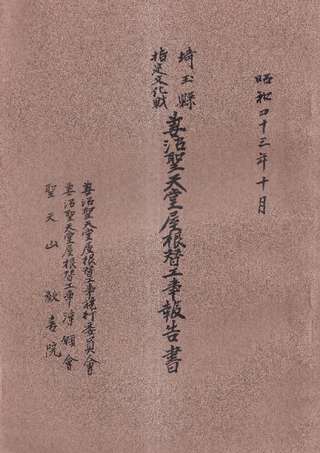 昭和四十三年十月
埼玉縣
指定文化財
妻沼聖天堂屋根替工事報告書
妻沼聖天堂屋根替工事施行委員會
妻沼聖天堂屋根替工事浄願會
聖天山 歓喜院